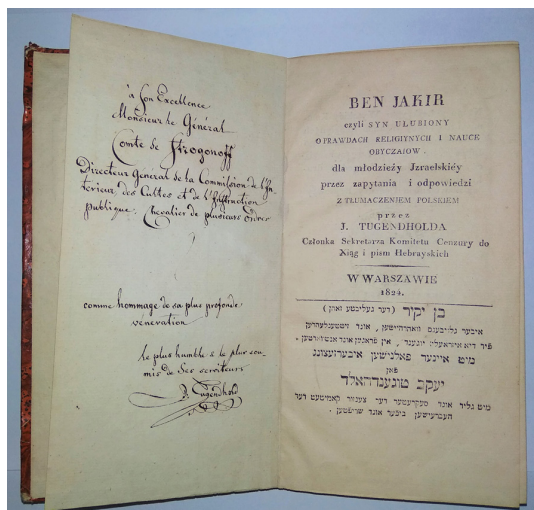 à Son Excellence
Monsieur le Général
Comte de Strogonoff
Directeur General de la Commission de l'In-
terieur des Cultes et de l'Instruction
publique. Chevalier de plusieurs Ordres
comme hommage de sa plus profonde
vénération
le plus humble & le plus sou-
mis de Ses serviteurs
J. Tugendhold
BEN JAKIR
czyli SYN ULUBIONY
O PRAWDACH RELIGIYNYCH I NAUCE
OBYCZAIOW.
dla młodzieży Jzraelskiéy
przez zapytania i odpowiedzi
Z TŁUMACZENIEM POLSKIEM
przez
J. TUGENDHOLDA
Członka Sekretarza Komitetu Cenzury do
Xiąg i pism Hebrayskich
W WARSZAWIE
1824.
בן יקיר (דער געליבטע זאהן)
איבער גלויבענס וואהרהייטען, אונד זיטטענלעהרען
פיר דיא איזראעליט יוגענד, אין פראגען אונד אנטווארטען,
מיט איינער פאלנישען איבערזעצונג
פאן
יעקב טוגענדהאלד
מיט גליד אונד סעקרעטער דער צענזור קאמיטעט דער
העברעישען ביכער אונד שריפטען.